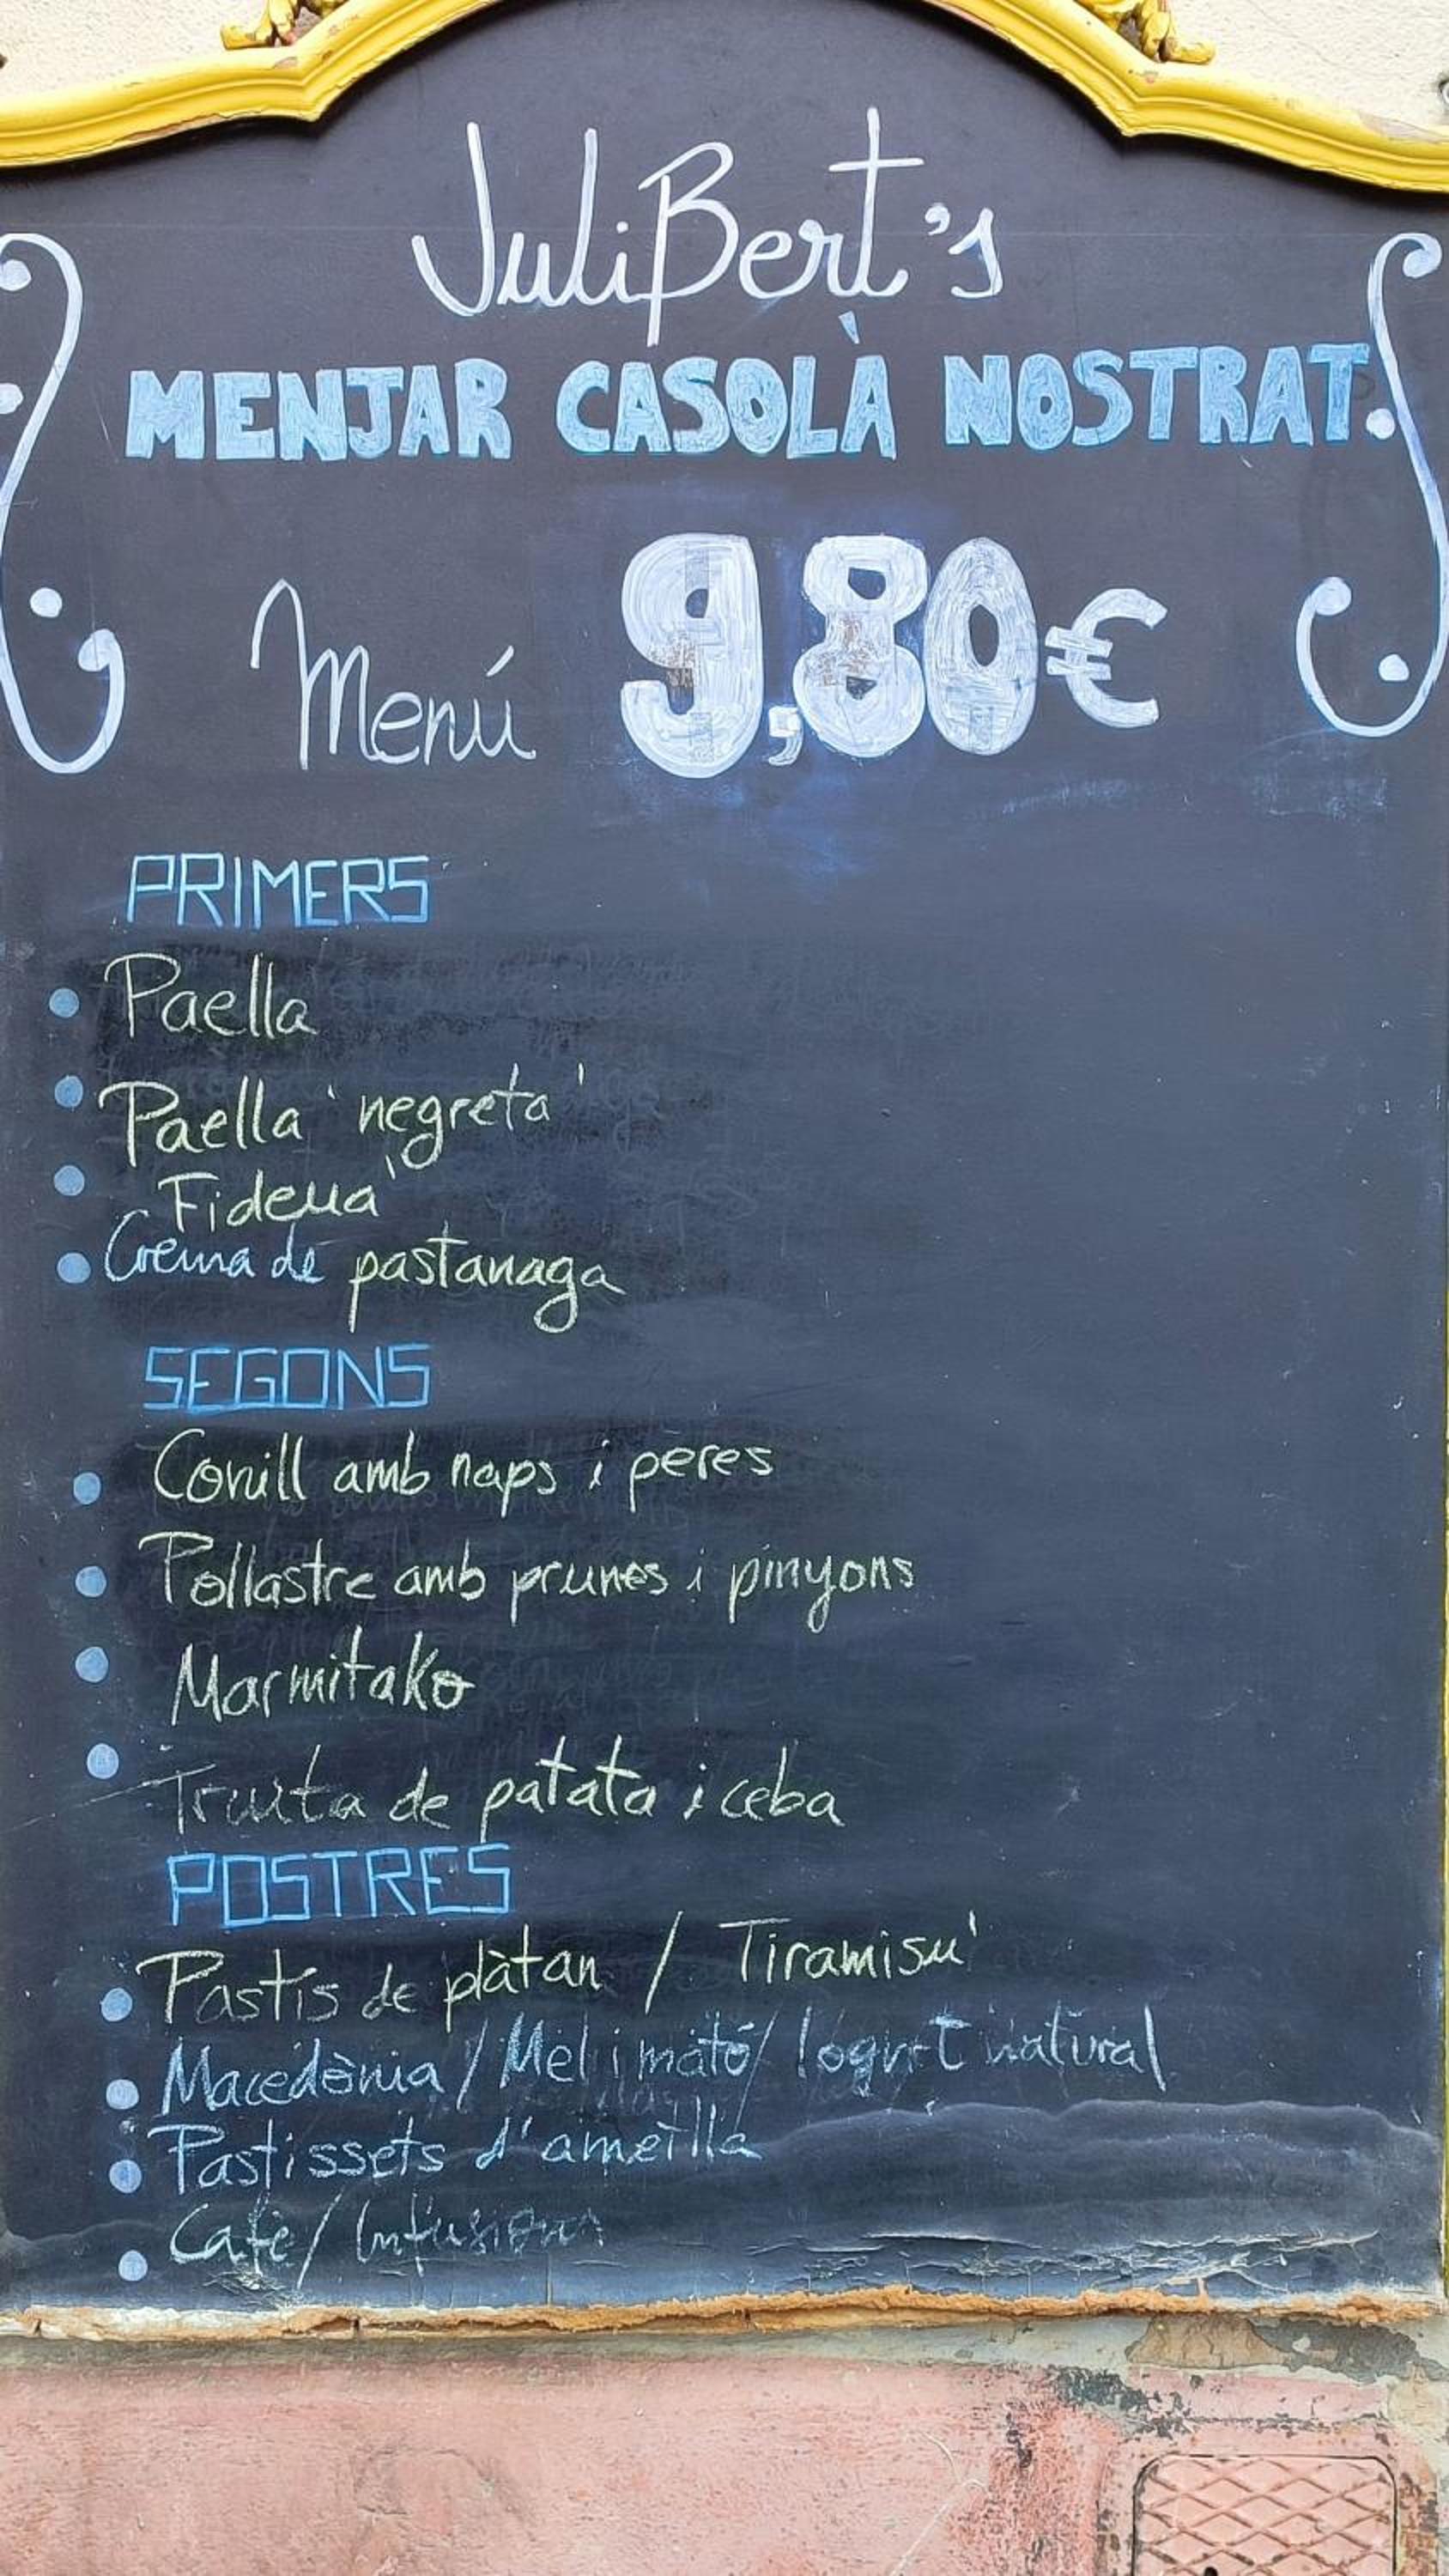 JuliBert's
MENJAR CASOLÀ NOSTRAT.
Menú 9,80€
PRIMERS
Paella
Paella 'negreta'
Fideuà
Crema de pastanaga
SEGONS
Conill amb naps i peres
Pollastre amb prunes i pinyons
Marmitako
Truita de patata i ceba
POSTRES
Pastís de plàtan / Tiramisú
Macedònia / Mel i mató / Iogurt natural
Pastissets d'ametlla
Cafè / Infusions